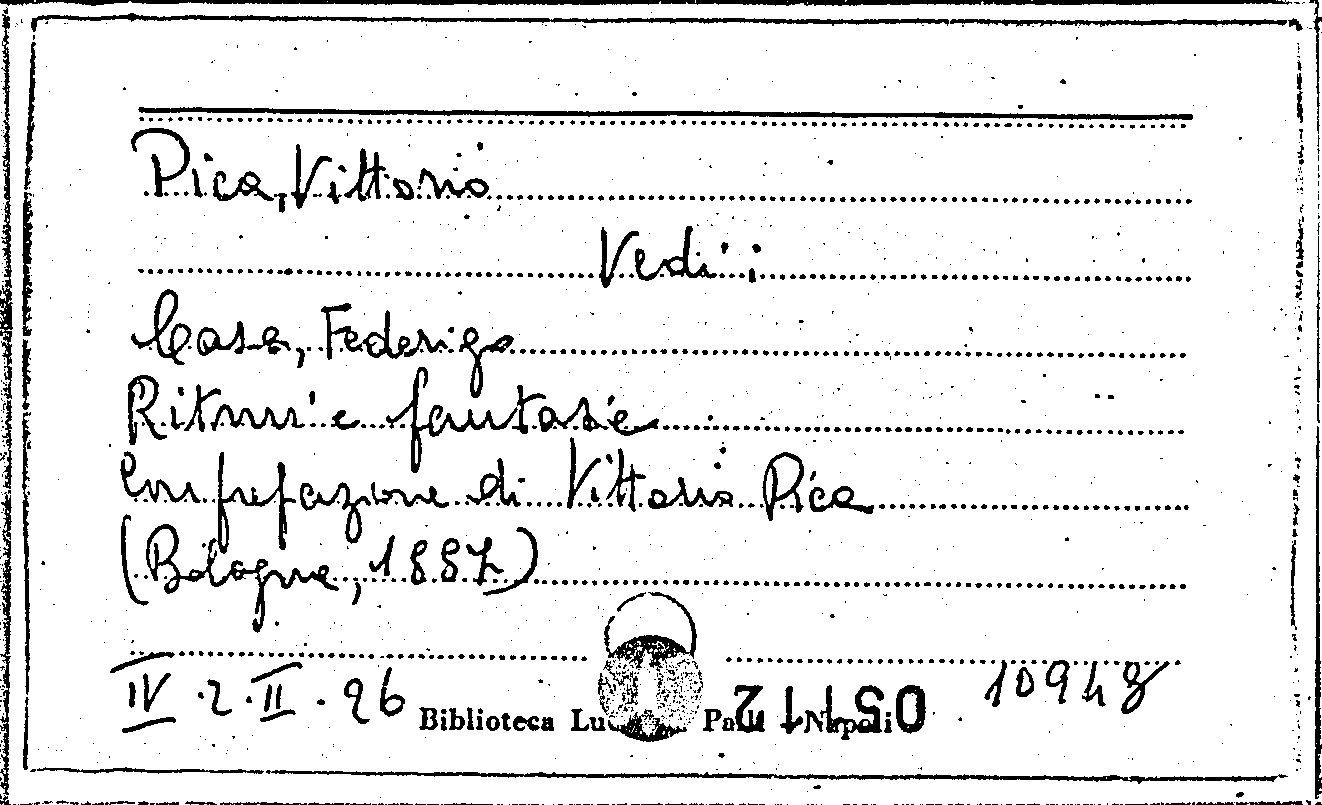 Pica, Vittorio
Vedi:
Casa, Federigo
Ritmi e fantasie
Con prefazione di Vittorio Pica
(Bologna, 1887)
IV . 2 . II . 26
10948
Biblioteca Napoli